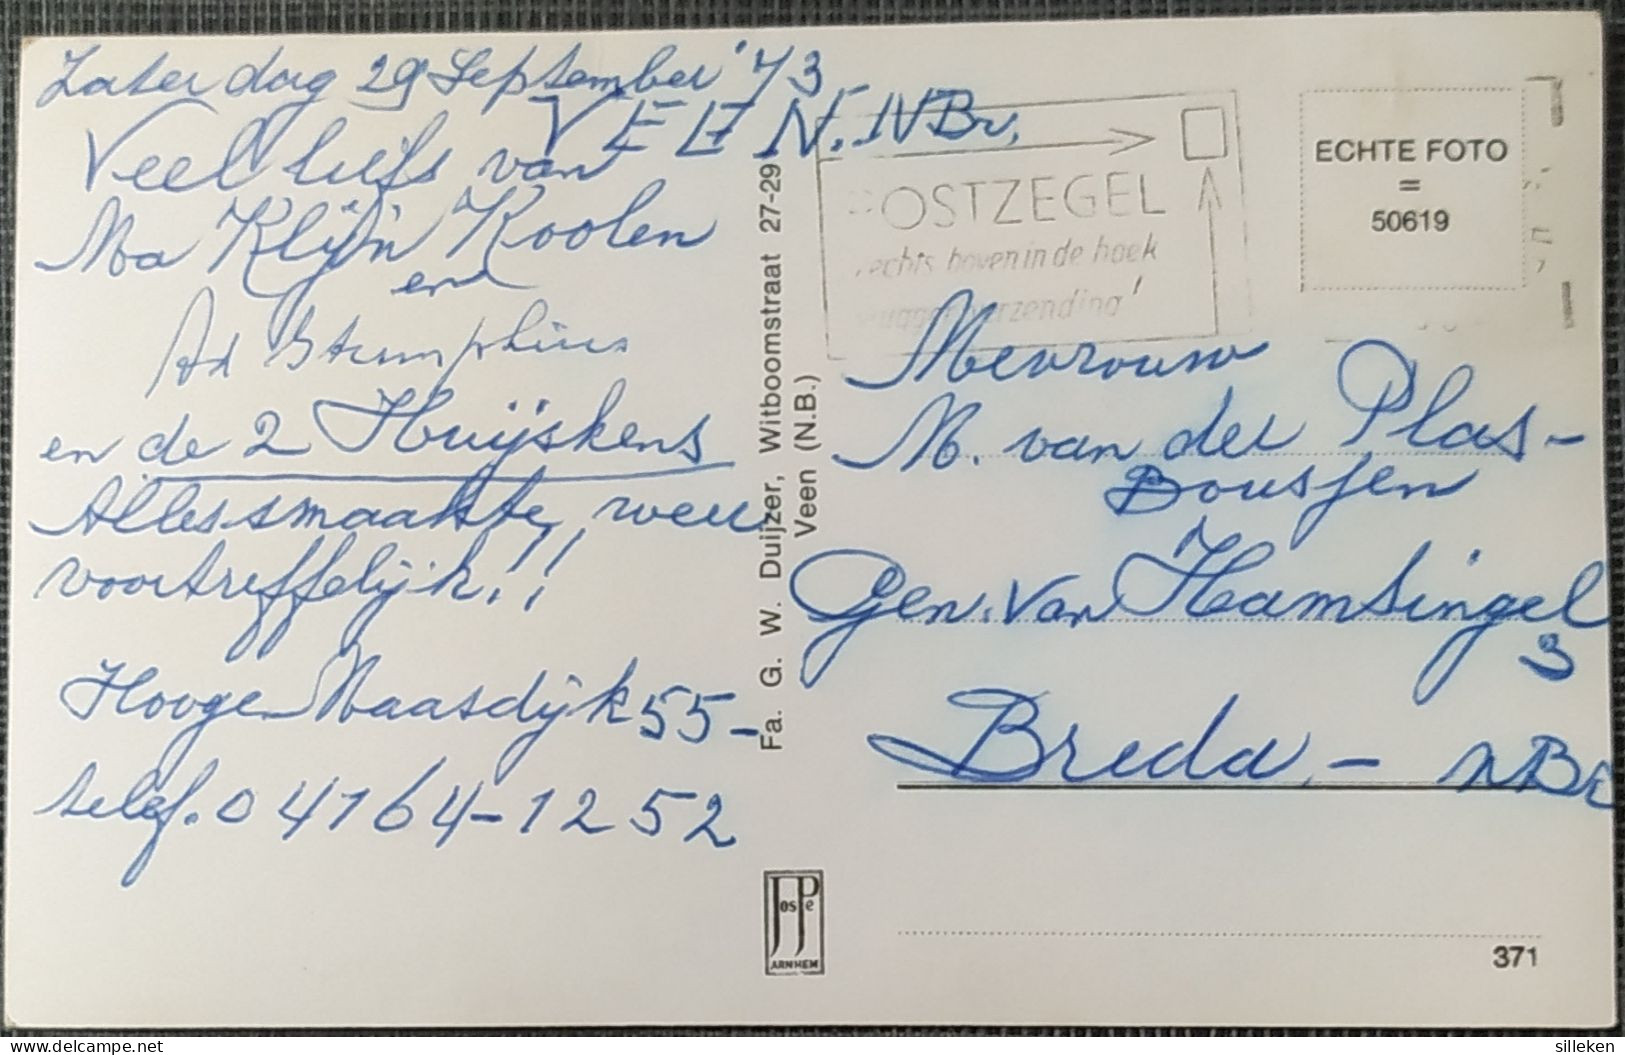 Zaterdag 29 September '73
VEEN. NBr.
Veel liefs van
Ma Klijn Koolen
en
Ad Stumphius
en de 2 Huijskens
Alles smaakte weer
voortreffelijk!!
Hooge Maasdijk 55-
telef. 04164-1252
Fa. G. W. Duijzer, Witboomstraat 27-29
Veen (N.B.)
JosPe
ARNHEM
POSTZEGEL
rechts boven in de hoek
vlugger verzending'
ECHTE FOTO
=
50619
Mevrouw
M. van der Plas-
Gen. van Hamsingel
3
Breda, - NBr
371
delcampe.net
silleken